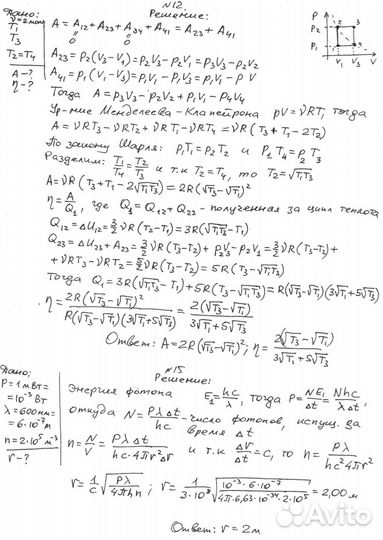 N12
Дано: Решение:
ν=2моль
T₁
T₃
T₂=T₄
A-?
η-?
A = A₁₂+A₂₃+A₃₄+A₄₁ = A₂₃+A₄₁
0 0
A₂₃ = P₂(V₃-V₁) = P₂V₃-P₂V₁ = P₃V₃-P₂V₂
A₄₁ = P₁(V₁-V₃) = P₁V₁-P₁V₃ = P₁V₁-P V
Тогда A = P₃V₃-P₂V₂+P₁V₁-P₄V₄
Ур-ние Менделеева-Клапейрона pV=νRT, тогда
A = νRT₃-νRT₂+νRT₁-νRT₄ = νR(T₃+T₁-2T₂)
По закону Шарля: P₁T₁=P₂T₂ и P₁T₄=P₂T₃
Разделим: T₁/T₄=T₂/T₃ и т.к T₂=T₄, то T₂=√T₁T₃
A = νR(T₃+T₁-2√T₁T₃) = 2R(√T₃-√T₁)²
η=A/Q₁, где Q₁=Q₁₂+Q₂₃ - полученная за цикл теплота
Q₁₂=ΔU₁₂=3/2 νR(T₂-T₁)=3R(√T₁T₃-T₁)
Q₂₃=ΔU₂₃+A₂₃=3/2 νR(T₃-T₂)+P₂V₃-P₂V₁=3/2 νR(T₃-T₂)+
+νRT₃-νRT₂=5/2 νR(T₃-T₂)=5R(T₃-√T₁T₃)
Тогда Q₁=3R(√T₁T₃-T₁)+5R(T₃-√T₁T₃)=R(√T₃-√T₁)(3√T₁+5√T₃)
η=2R(√T₃-√T₁)²/R(√T₃-√T₁)(3√T₁+5√T₃)=2(√T₃-√T₁)/3√T₁+5√T₃
Ответ: A=2R(√T₃-√T₁)²; η=2(√T₃-√T₁)/3√T₁+5√T₃
P
P₂
P₁
2 3
1
V₁ V₃ V
N15
Дано: Решение:
P=1мВт=
=10⁻³Вт
λ=600нм=
=6·10⁻⁷м
n=2·10⁵м⁻³
r-?
Энергия фотона E₁=hc/λ, тогда P=NE₁/Δt=Nhc/λΔt,
откуда N=PλΔt/hc - число фотонов, испущ. за
время Δt
n=N/V=PλΔt/hc·4πr²ΔV и т.к ΔV/Δt=c, то n=Pλ/hc²4πr²
r=1/c√Pλ/4πhn; r=1/3·10⁸√10⁻³·6·10⁻⁷/4π·6,63·10⁻³⁴·2·10⁵=2,00м
Ответ: r=2м
Avito